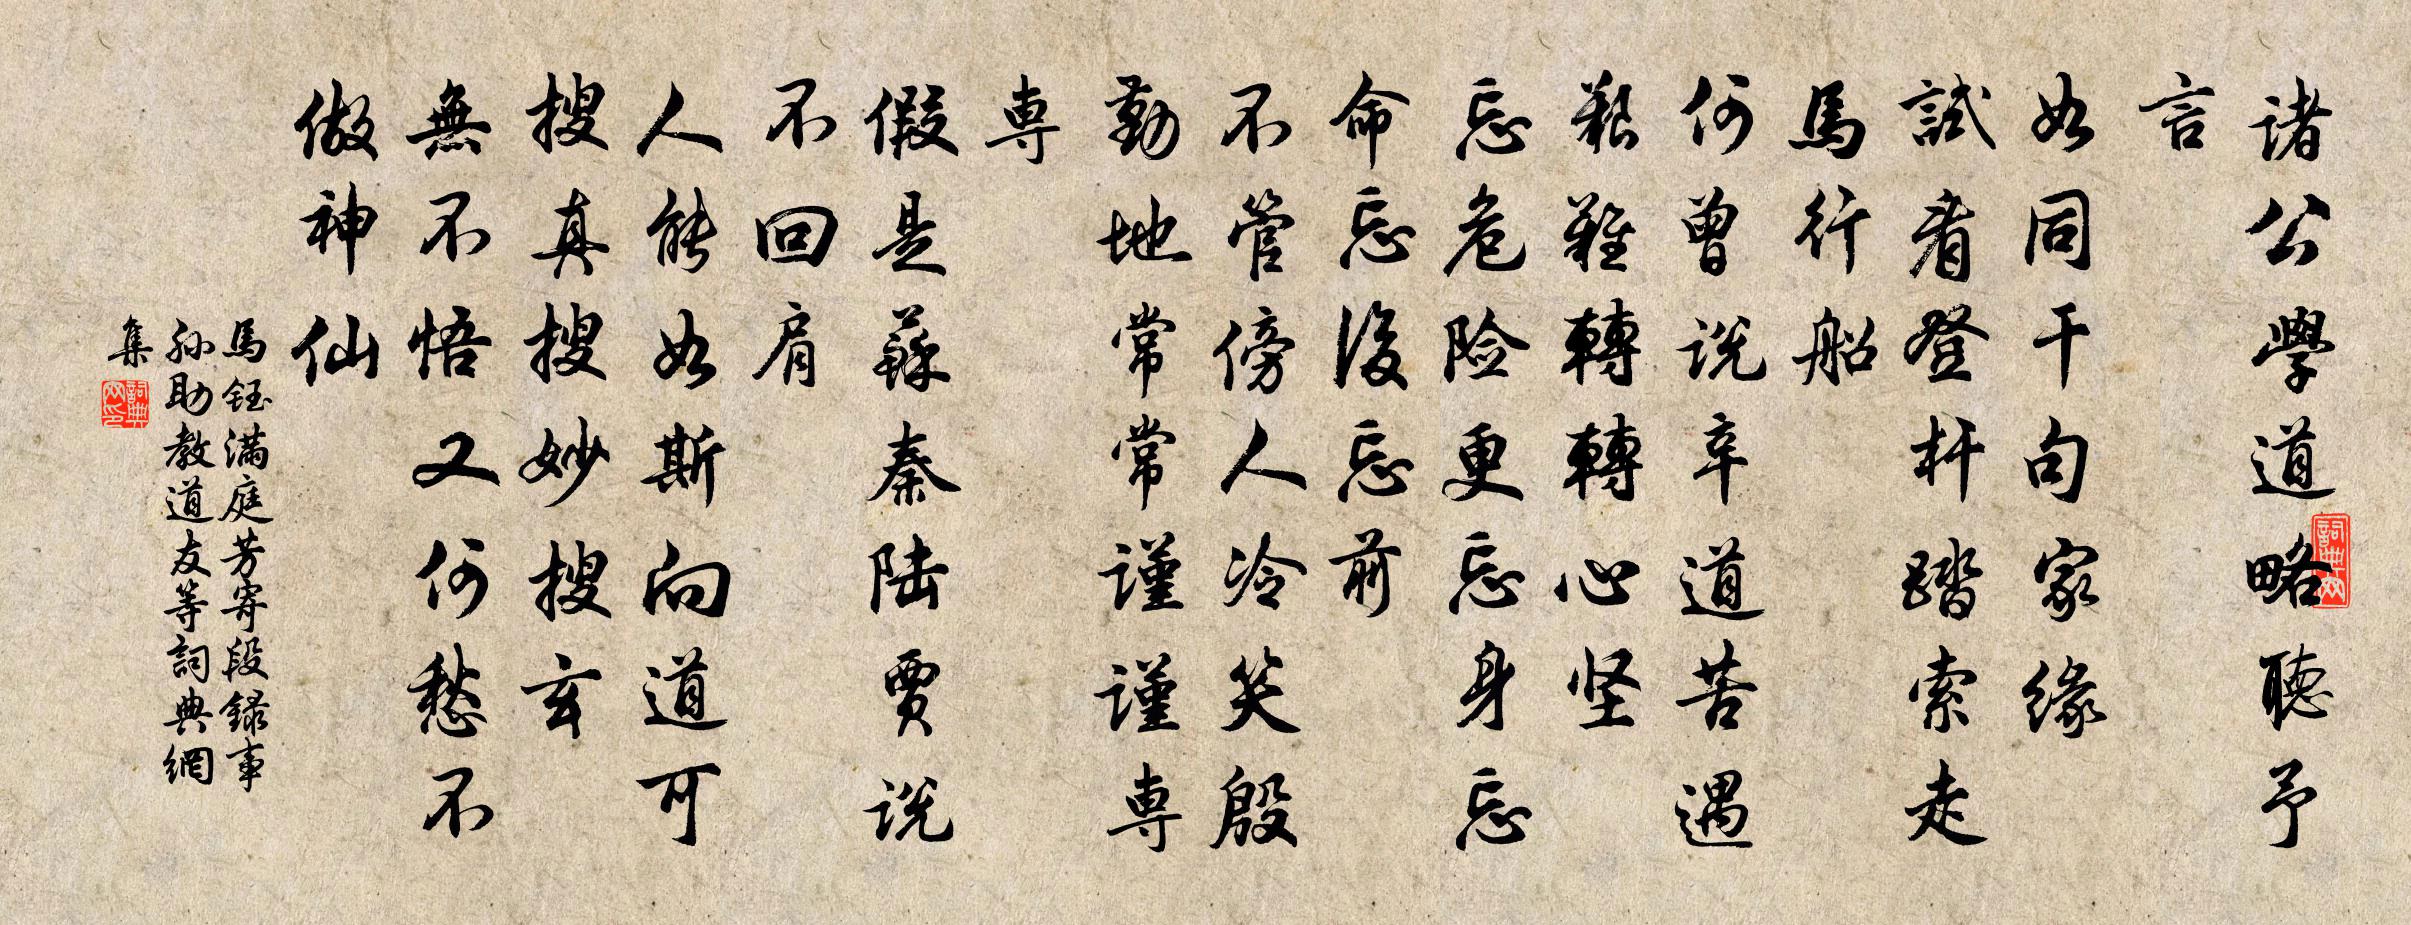 諸公學道略聽予
言
如同干句家缘
試看登杆踏索走
馬行船
何曾说辛道苦遇
艱難轉轉心坚
忘危险更忘身忘
命忘後忘前
不管傍人冷笑殷
勤地常常謹謹専
専
假是蘇秦陆贾说
不回肩
人能如斯向道可
搜真搜妙搜玄
無不悟又何愁不
做神仙
馬钰满庭芳寄段録事
孙助教道友等詞典網
集
詞典网
詞典网印